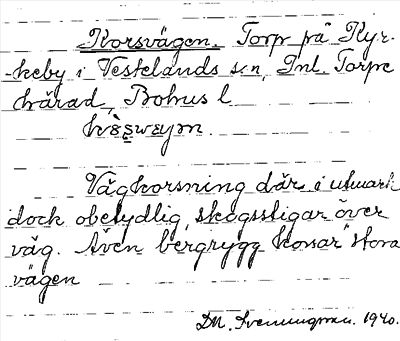 Korsvägen. Torp på Kyr-
keby i Vestelands sn, Inl. Torpe
härad, Bohus l
Vägkorsning där i utmark
dock obetydlig, skogsstigar över
väg. Även bergrygg korsar "stora
vägen
D.M. Svenningman. 1940.